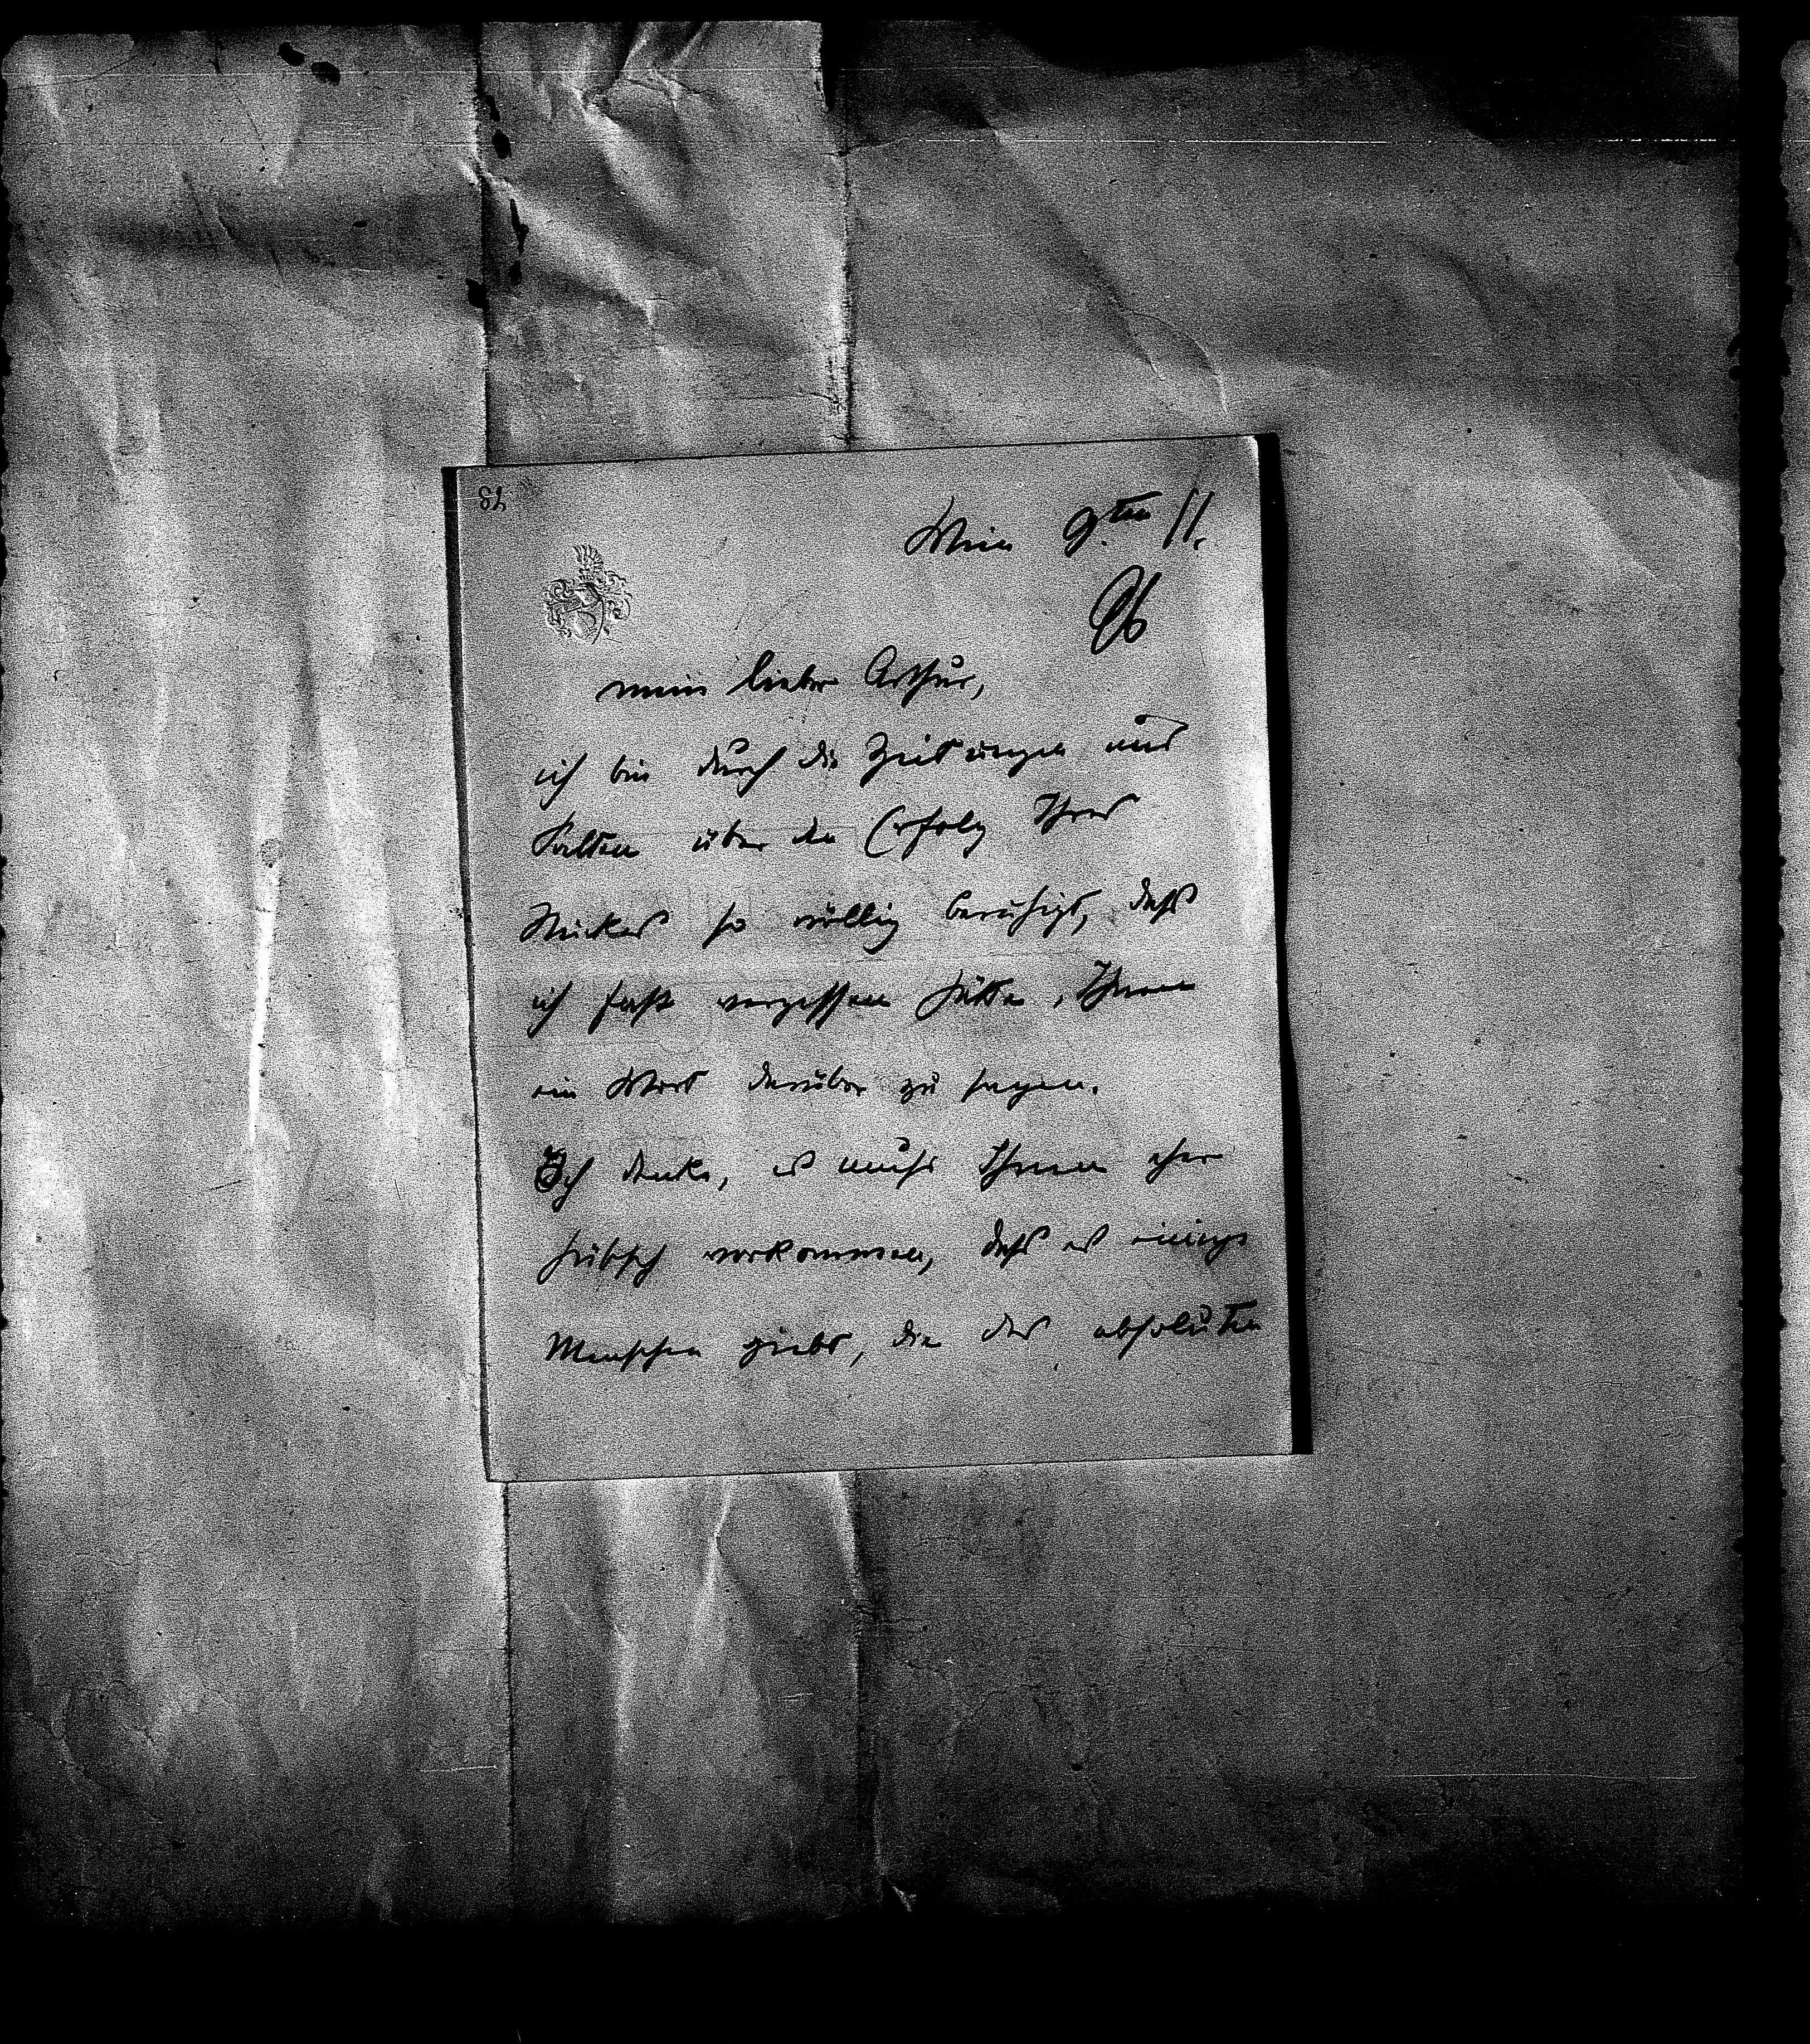 78
Wien 9.ten 11.
96
mein lieber Arthur,
ich bin durch die Zeitungen und
Salten über den Erfolg Ihres
Stückes so völlig beruhigt, dass
ich fast vergessen hätte, Ihnen
ein Wort darüber zu sagen.
Ich denke, es muss Ihnen sehr
hübsch vorkommen, dass es einige
Menschen giebt, die des absoluten